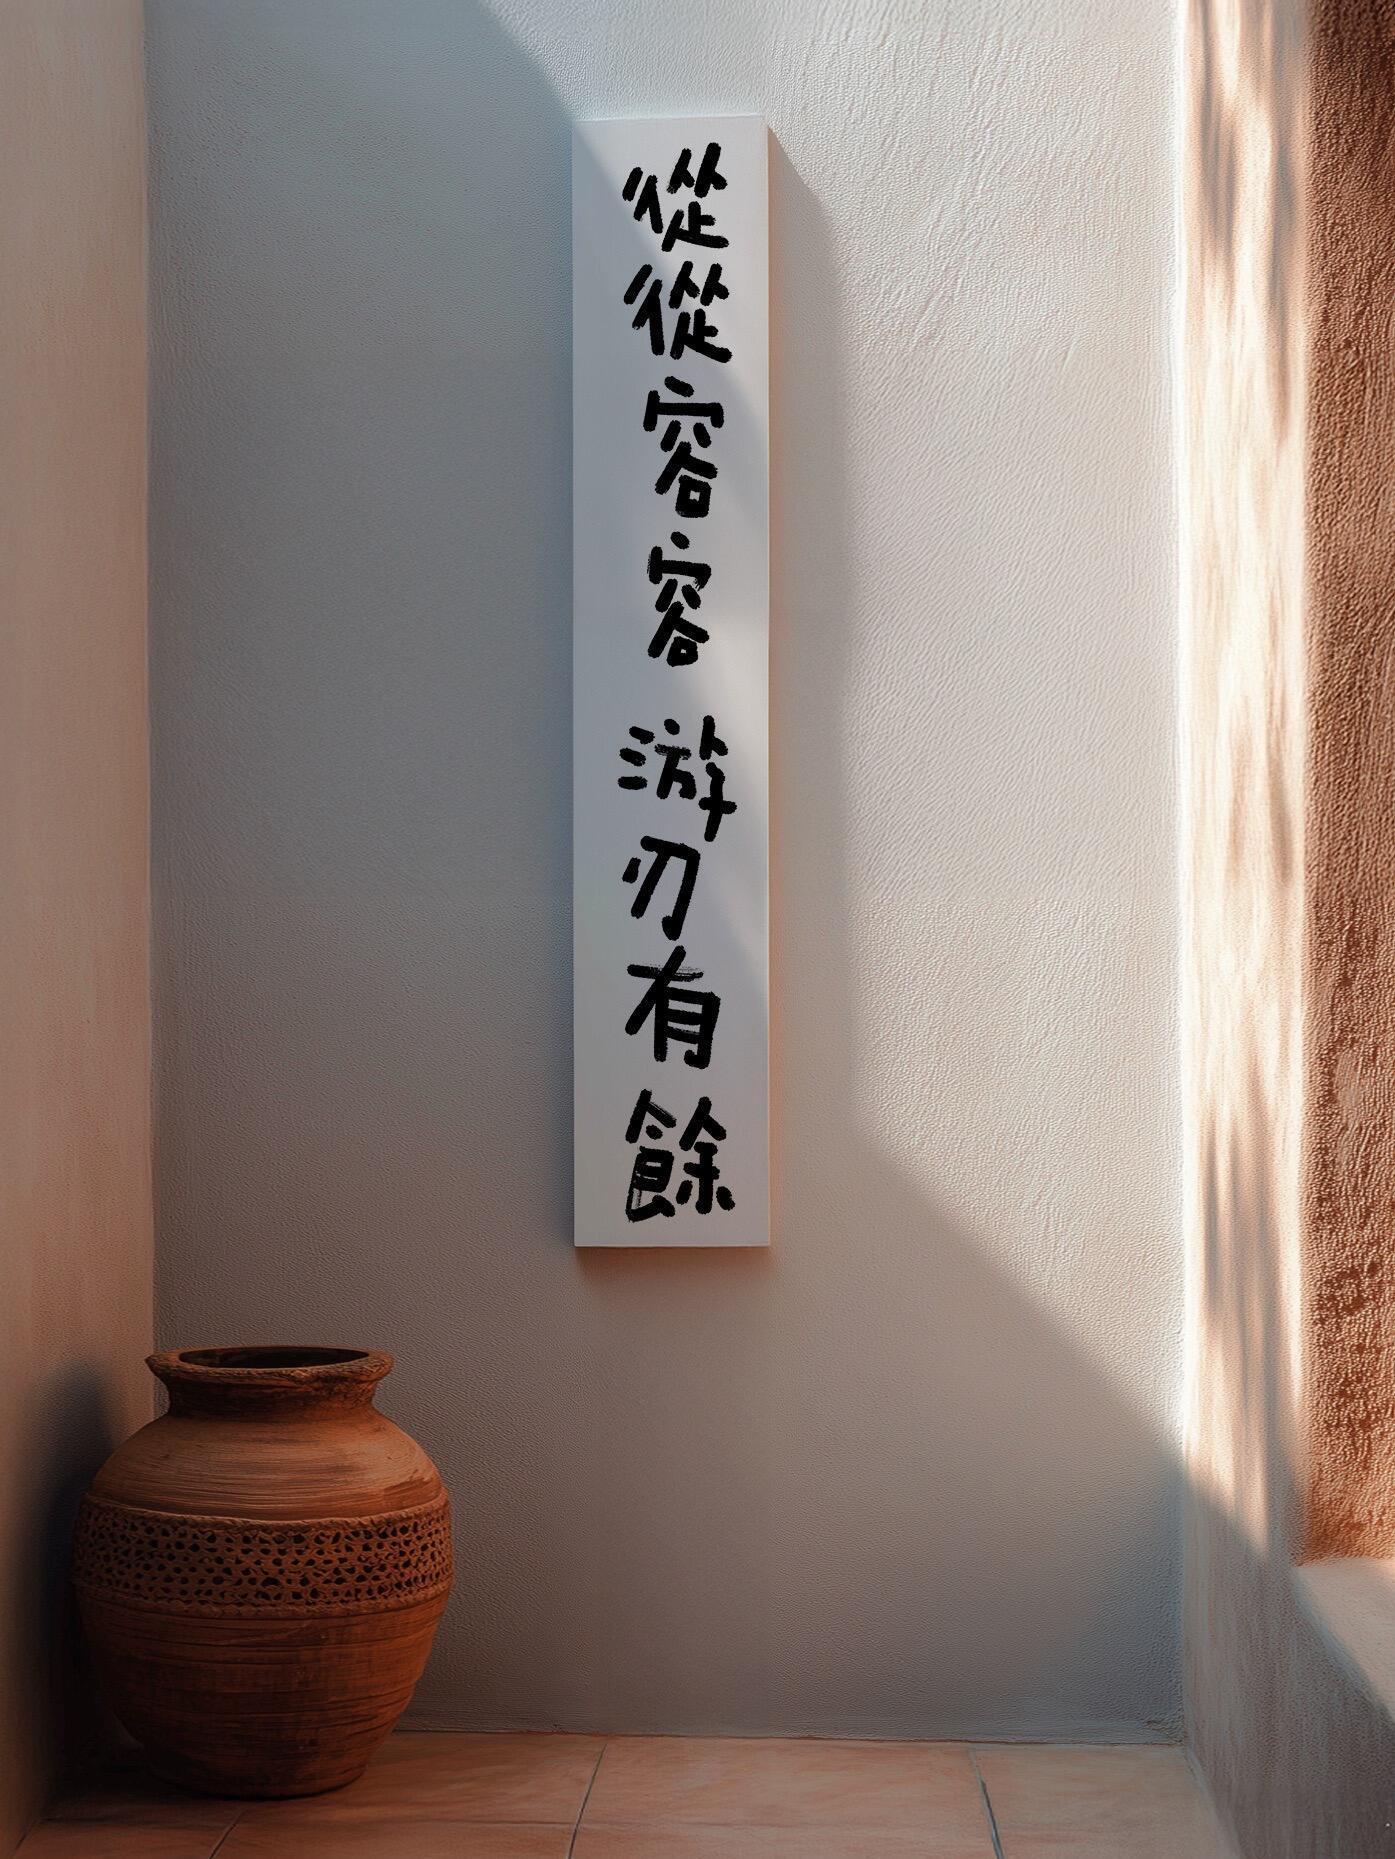 從從容容 游刃有餘